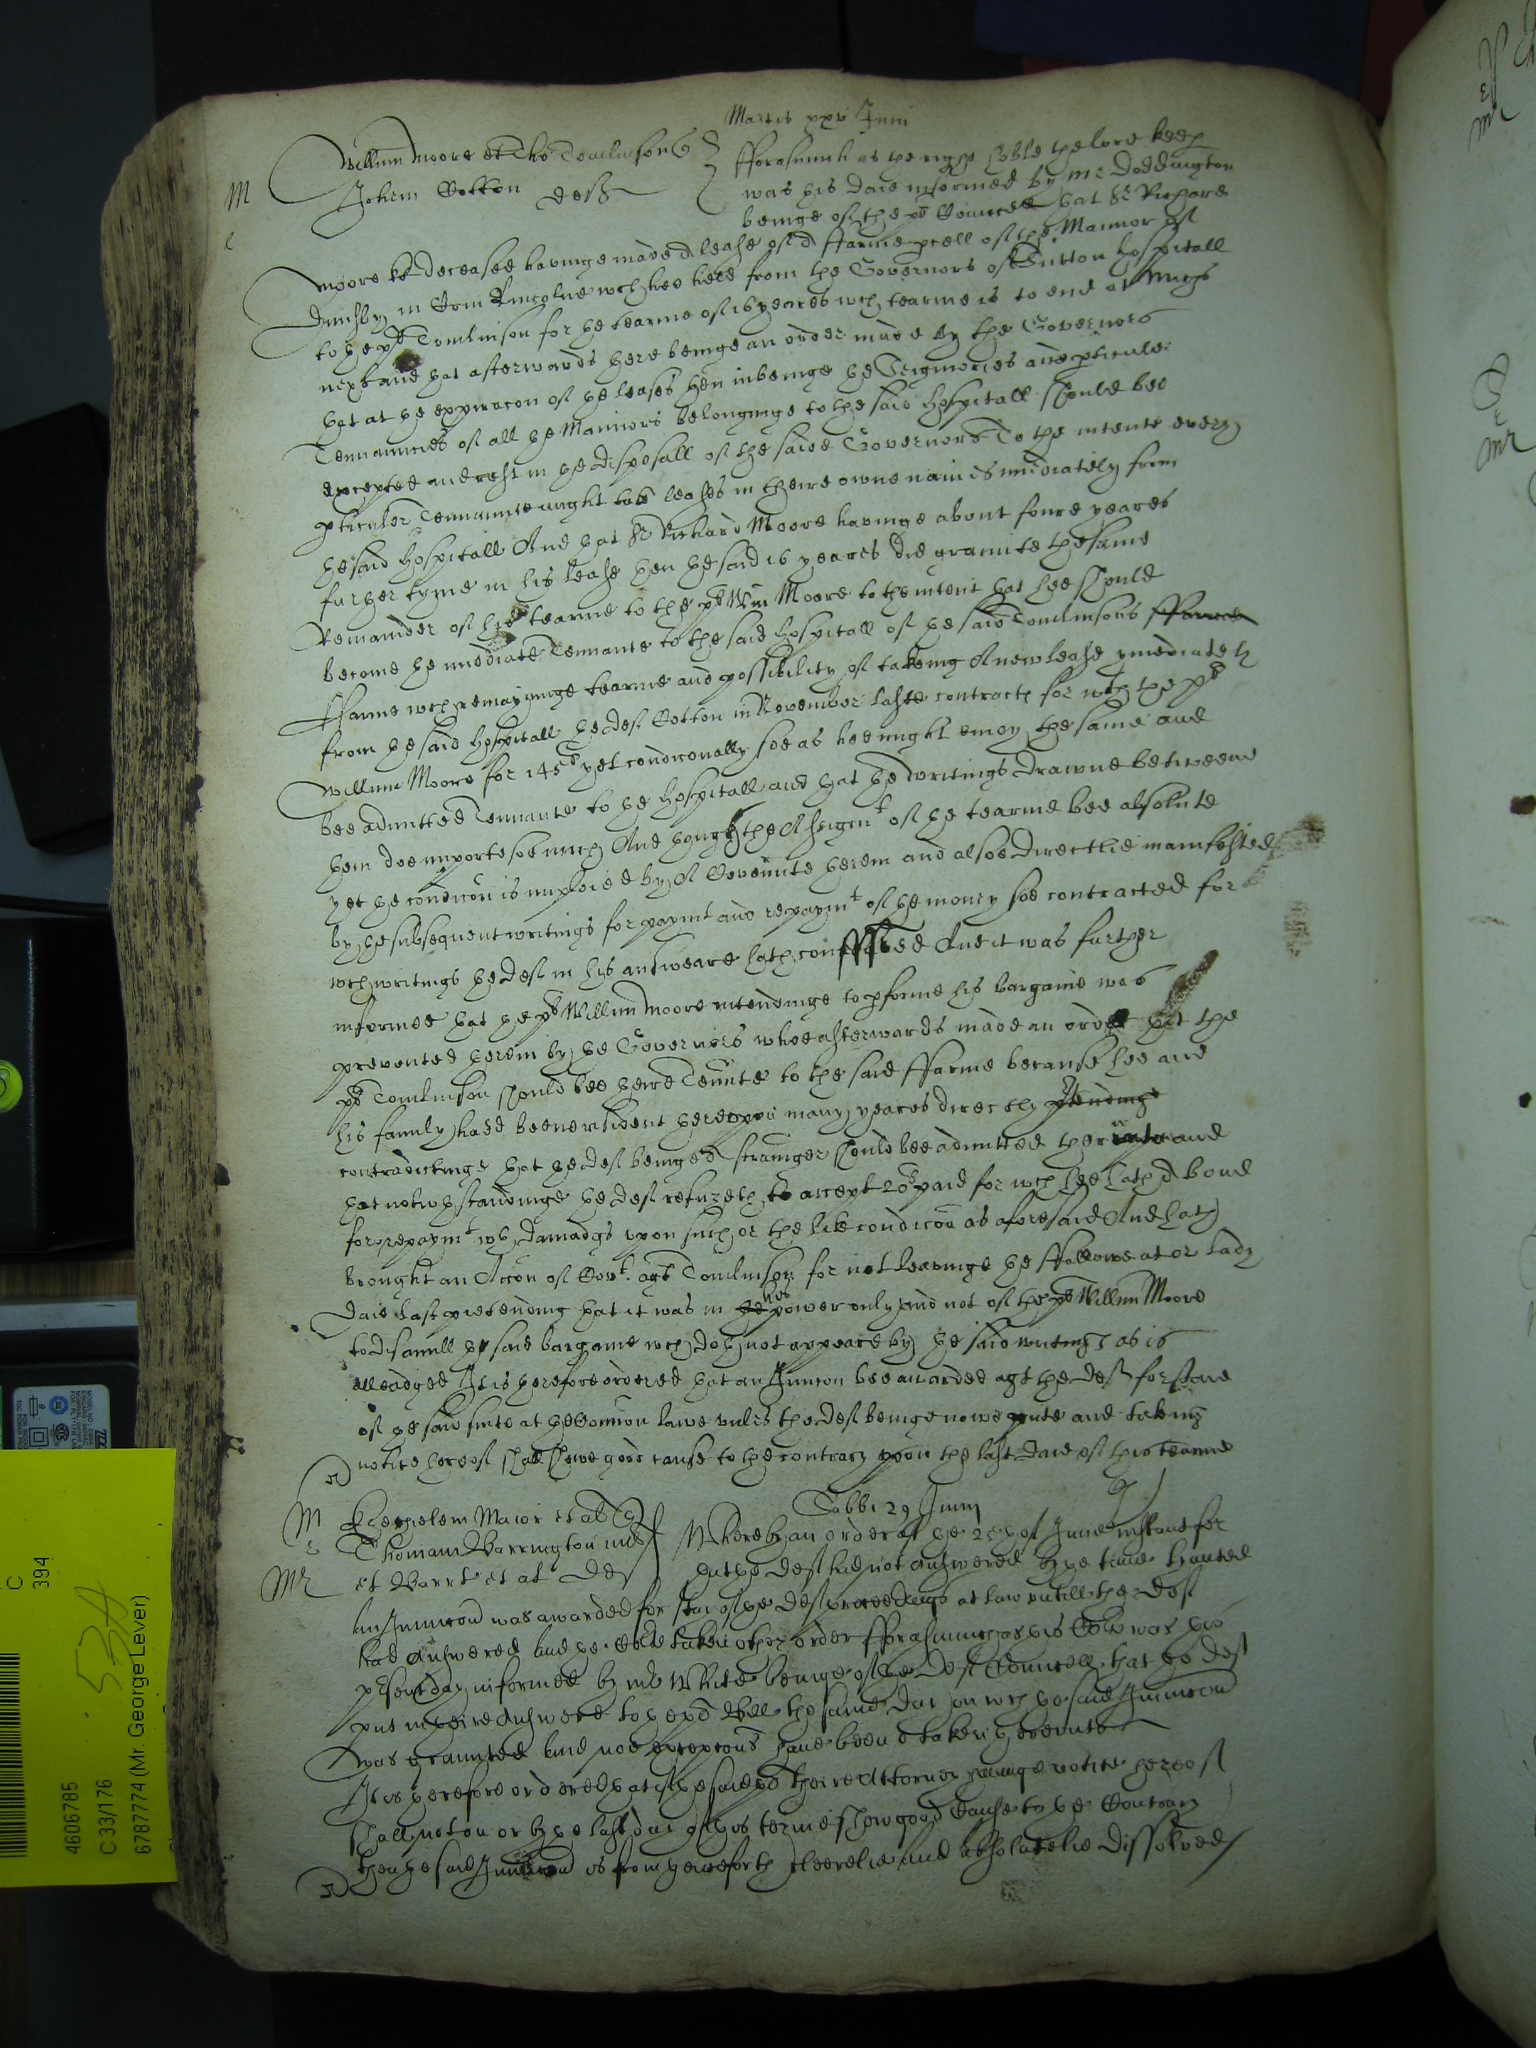 Martis xxv Junii
Willmus Moore et Tho Tomlinson
Johem Cotton deft
M
fforasmuch as the right hoble the lord keep
was this daie informed by mr Doddington
beinge of the pts Councell that Sr Richard
Moore kt deceased havinge made a lease of a ffarme pcell of the Mannor of
Dunsby in Com Lincolne wch hee held from the Governors of Sutton Hospitall
to the pt Tomlinson for the tearme of 16 yeares wch tearme is to end at Michs
next and that afterwards there beinge an order made by the Governors
that at the expiracon of the leases then in beinge the Seigniories and pticuler
Tennancies of all the Mannors belonginge to the said Hospitall should bee
excepted and rest in the disposall of the saide Governors To the intente every
pticuler Tennaunte might take leases in theire owne names imediately from
the said Hospitall And that Sr Richard Moore havinge about foure yeares
further tyme in his lease then the said 16 yeares did graunte the same
Remainder of his tearme to the pt Wm Moore to the intent that hee should
become the imediate Tennante to the said Hospitall of the said Tomlinsons ffarme
ffarme wch remayninge tearme and possibility of takeing A new lease ymediately
from the said Hospitall the deft Cotton in November laste contracted for wth the pt
Willm Moore for 145li yet condiconally soe as hee might enioy the same and
bee admitted Tennante to the Hospitall and that the writings drawne betweene
them doe importe soe much And though the Assignt of the tearme bee absolute
yet the condicon is implied by A Covennte therein and alsoe directlie manifested
by the subsequent writings for paymt and repaymt of the money soe contracted for
wch writings the deft in his answeare hath confessed And it was further
informed that the pt Willm Moore intendinge to pforme his bargaine was
prevented therein by the Governors whoe afterwards made an order that the
pt Tomlinson should bee theire Tennte to the said ffarme because hee and
his family hadd beene resident thereuppon many yeares directly
contradictinge that the deft beinge a stranger should bee admitted thereunto and
that notwthstandinge the deft refuzeth to accept 20li paid for wch hee hath a bond
for repaymt wth damadgs upon such or the like condicon as aforesaid And hath
brought an Accon of Covt. agt Tomlinson for not leavinge the ffallowe at or Lady
daie last pretending that it was in his power only and not of the pt Willm Moore
to disanull the said bargaine wch doth not appeare by the said writings as is
alleadged It is therefore ordered that an Iniuncon bee awarded agt the deft for staie
of the said suite at the Comon lawe unles the deft beinge nowe psente and taking
notice hereof shall shewe good cause to the contrary upon the last daie of this tearme
Sabbi 29 Junii
M
Ezechielem Maior et al
Thomam Barrington
et Barrt et al def
Mr
Whereby an order of the 25th of June instant for
that the deft had not answered by the time lymited
an Iniuncon was awarded for stai of the deft proceedings at law untill the deft
had answered and the Corte taken other order fforasmuch as this Corte was this
present day informed by mr White beinge of the deft Councell that the deft
put in theire answere to the pts Bill the same dai on wch the said Iniuncon
was graunted and noe excepcons have beene taken thereunto
It is therefore ordered that if the said pts theire Attorney haveinge notice hereof
shall not on or by the last dai of this terme shew good cause to the contrary
then the said Iniuncon is from henceforth cleerelie and absolutelie dissolved
C
394
53A
4606785
C 33/176
6787774 (Mr. George Lever)